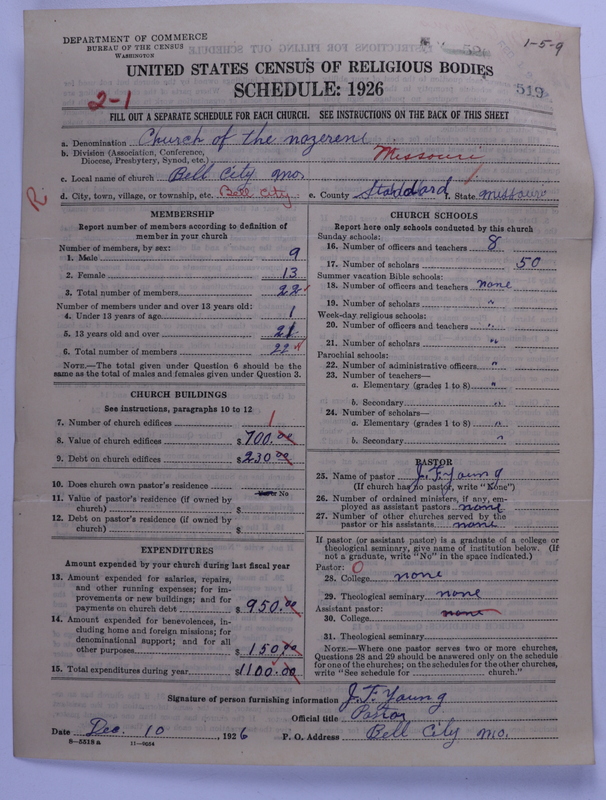 DEPARTMENT OF COMMERCE
BUREAU OF THE CENSUS
WASHINGTON
1-5-9
UNITED STATES CENSUS OF RELIGIOUS BODIES
SCHEDULE: 1926
2-1
519
FILL OUT A SEPARATE SCHEDULE FOR EACH CHURCH. SEE INSTRUCTIONS ON THE BACK OF THIS SHEET
a. Denomination Church of the nazerene
b. Division (Association, Conference, Diocese, Presbytery, Synod, etc.) Missouri
c. Local name of church Bell City Mo.
R.
d. City, town, village, or township, etc. Bell City e. County Stoddard f. State Missouri
MEMBERSHIP
Report number of members according to definition of
member in your church
Number of members, by sex:
1. Male 9
2. Female 13
3. Total number of members 22
Number of members under and over 13 years old:
4. Under 13 years of age 1
5. 13 years old and over 21
6. Total number of members 22
NOTE.—The total given under Question 6 should be
same as the total of males and females given under Question 3.
CHURCH BUILDINGS
See instructions, paragraphs 10 to 12
7. Number of church edifices 1
8. Value of church edifices $700.00
9. Debt on church edifices $230.00
10. Does church own pastor's residence No
11. Value of pastor's residence (if owned by
church) $
12. Debt on pastor's residence (if owned by
church) $
EXPENDITURES
Amount expended by your church during last fiscal year
13. Amount expended for salaries, repairs,
and other running expenses; for im-
provements or new buildings; and for
payments on church debt $950.00
14. Amount expended for benevolences, in-
cluding home and foreign missions; for
denominational support; and for all
other purposes 150.00
15. Total expenditures during year $1100.00
CHURCH SCHOOLS
Report here only schools conducted by this church
Sunday schools:
16. Number of officers and teachers 8
17. Number of scholars 50
Summer vacation Bible schools:
18. Number of officers and teachers none
19. Number of scholars "
Week-day religious schools:
20. Number of officers and teachers "
21. Number of scholars "
Parochial schools:
22. Number of administrative officers "
23. Number of teachers—
a. Elementary (grades 1 to 8) "
b. Secondary "
24. Number of scholars—
a. Elementary (grades 1 to 8) "
b. Secondary "
PASTOR
25. Name of pastor J. F. Young
(If church has no pastor, write "None")
26. Number of ordained ministers, if any, em-
ployed as assistant pastors none
27. Number of other churches served by the
pastor or his assistants none
If pastor (or assistant pastor) is a graduate of a college or
theological seminary, give name of institution below. (If
not a graduate, write "No" in the space indicated.)
Pastor: O
28. College none
29. Theological seminary none
Assistant pastor:
30. College none
31. Theological seminary
NOTE.—Where one pastor serves two or more churches,
Questions 28 and 29 should be answered only on the schedule
for one of the churches; on the schedules for the other churches,
write "See schedule for church."
Signature of person furnishing information J. F. Young
Official title Pastor
Date Dec. 10 1926 P. O. Address Bell City Mo.
8-5518a 11-9054